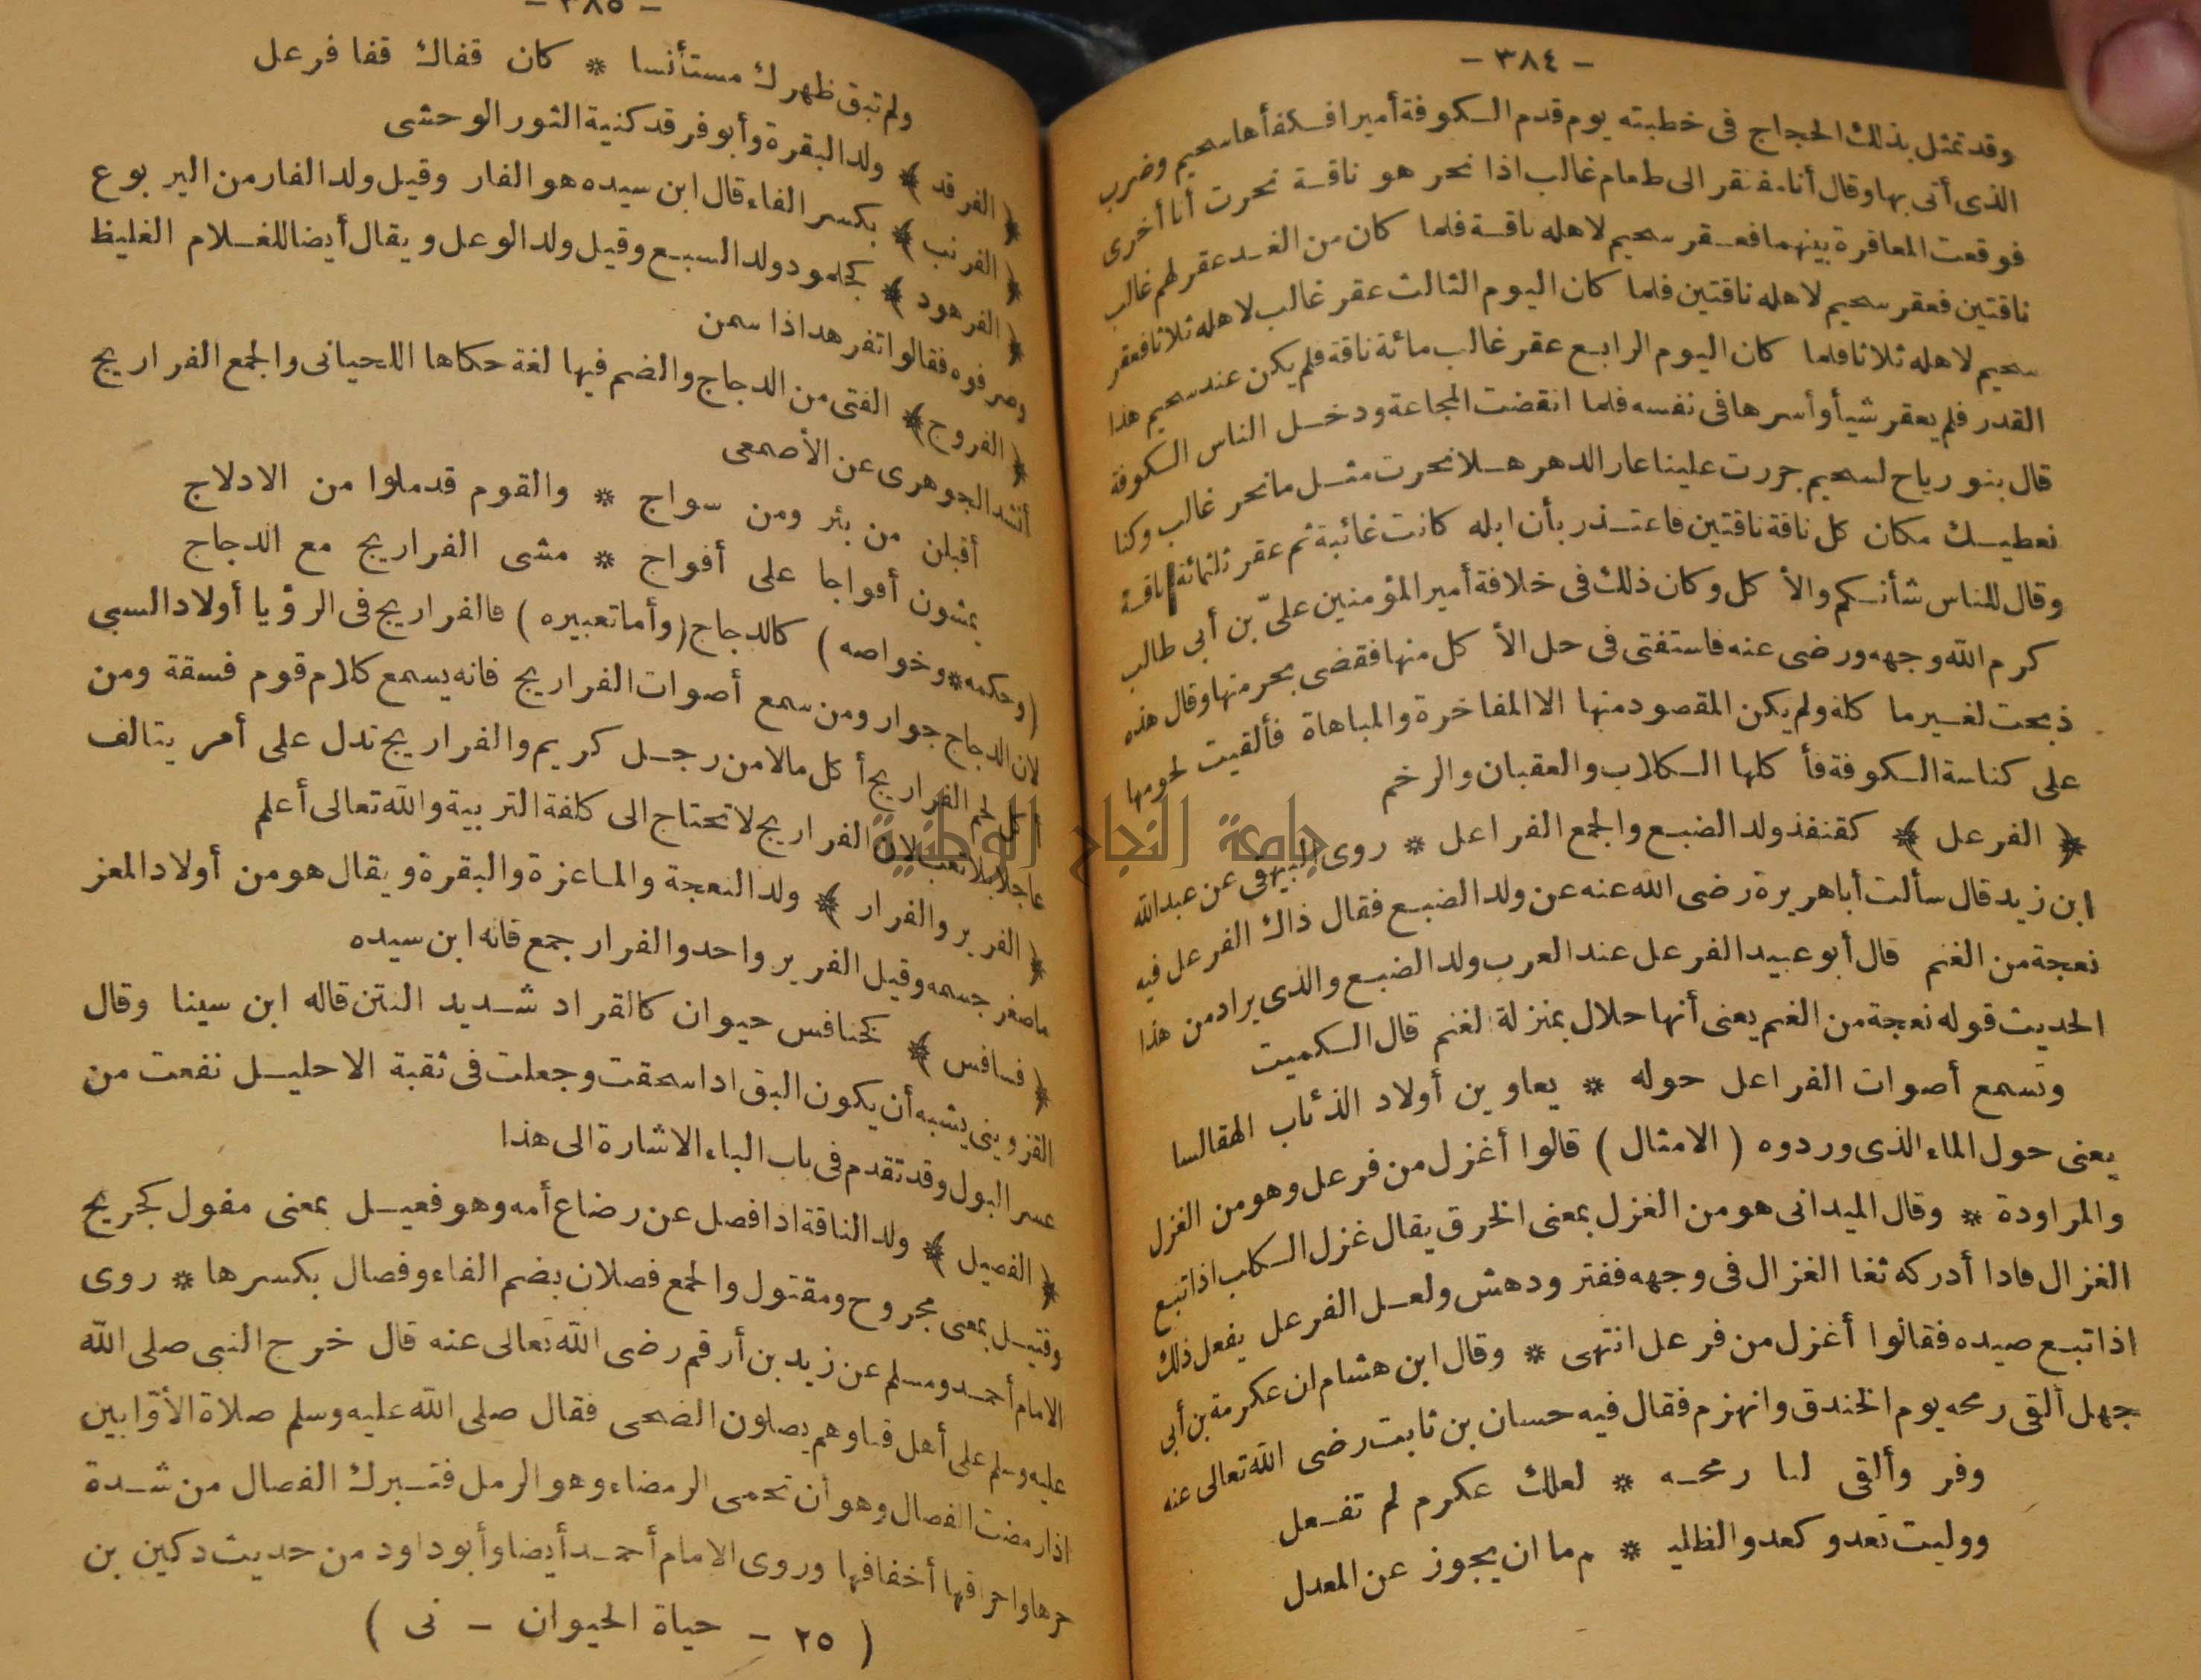 - ٣٨٤ -
وقد تمثل بذلك الحجاج فى خطبته يوم قدم الكوفة أميرا فكفأها سحيم وضرب
الذى أتى بها وقال أنا مفتقر الى طعام غالب اذا نحر هو ناقة نحرت أنا أخرى
فوقعت المعاقرة بينهما فعقر سحيم لاهله ناقة فلما كان من الغد عقر لهم غالب
ناقتين فعقر سحيم لاهله ناقتين فلما كان اليوم الثالث عقر غالب لاهله ثلاثا فعقر
سحيم لاهله ثلاثا فلما كان اليوم الرابع عقر غالب مائة ناقة فلم يكن عند سحيم هذا
القدر فلم يعقر شيأ وأسرها فى نفسه فلما انقضت المجاعة ودخل الناس الكوفة
قال بنو رياح لسحيم جررت علينا عار الدهر هلا نحرت مثل ما نحر غالب وكنا
نعطيك مكان كل ناقة ناقتين فاعتذر بأن ابله كانت غائبة ثم عقر ثلثمائة ناقة
وقال للناس شأنكم والأكل وكان ذلك فى خلافة أمير المؤمنين علىّ بن أبى طالب
كرم الله وجهه ورضى عنه فاستفتى فى حل الأكل منها فقضى بحرمتها وقال هذه
ذبحت لغير ما كله ولم يكن المقصود منها الا المفاخرة والمباهاة فألقيت لحومها
على كناسة الكوفة فأكلها الكلاب والعقبان والرخم
﴿ الفرعل ﴾ كقنفذ ولد الضبع والجمع الفراعل * روى البيهقى عن عبدالله
ابن زيد قال سألت أبا هريرة رضى الله عنه عن ولد الضبع فقال ذاك الفرعل فيه
نعجة من الغنم قال أبو عبيد الفرعل عند العرب ولد الضبع والذى يراد من هذا
الحديث قوله نعجة من الغنم يعنى أنها حلال بمنزلة الغنم قال الكميت
وتسمع أصوات الفراعل حوله * يعاوين أولاد الذئاب الهقالسا
يعنى حول الماء الذى وردوه ( الامثال ) قالوا أغزل من فرعل وهو من الغزل
والمراودة * وقال الميدانى هو من الغزل بمعنى الخرق يقال غزل الكلب اذا تبع
الغزال فاذا أدركه ثغا الغزال فى وجهه ففتر ودهش ولعل الفرعل يفعل ذلك
اذا تبع صيده فقالوا أغزل من فرعل انتهى * وقال ابن هشام ان عكرمة بن أبى
جهل ألقى رمحه يوم الخندق وانهزم فقال فيه حسان بن ثابت رضى الله تعالى عنه
وفر وألقى لنا رمحه * لعلك عكرم لم تفعل
ووليت تعدو كعدو الظليـ * ـم ما ان يجوز عن المعدل
- ٣٨٥ -
ولم تبق ظهرك مستأنسا * كان قفاك قفا فرعل
﴿ الفرقد ﴾ ولد البقرة وأبو فرقد كنية الثور الوحشى
﴿ الفرنب ﴾ بكسر الفاء قال ابن سيده هو الفار وقيل ولد الفار من اليربوع
﴿ الفرهود ﴾ كجلمود ولد السبع وقيل ولد الوعل ويقال أيضا للغلام الغليظ
وصرفوه فقالوا تفرهد اذا سمن
﴿ الفروج ﴾ الفتى من الدجاج والضم فيها لغة حكاها اللحيانى والجمع الفراريج
أنشد الجوهرى عن الأصمعى
أقبلن من بئر ومن سواج * والقوم قد ملوا من الادلاج
يمشون أفواجا على أفواج * مشى الفراريج مع الدجاج
( وحكمه * وخواصه ) كالدجاج ( وأما تعبيره ) فالفراريج فى الرؤيا أولاد السبى
لان الدجاج جوار ومن سمع أصوات الفراريج فانه يسمع كلام قوم فسقة ومن
أكل لحم الفراريج أكل مالا من رجل كريم والفراريج تدل على أمر يتالف
عاجلا بلا تعب لان الفراريج لا تحتاج الى كلفة التربية والله تعالى أعلم
﴿ الفرير والفرار ﴾ ولد النعجة والماعزة والبقرة ويقال هو من أولاد المعز
ماصغر جسمه وقيل الفرير واحد والفرار جمع قاله ابن سيده
﴿ فسافس ﴾ كخنافس حيوان كالقراد شديد النتن قاله ابن سينا وقال
القزوينى يشبه أن يكون البق اذا سحقت وجعلت فى ثقبة الاحليل نفعت من
عسر البول وقد تقدم فى باب الباء الاشارة الى هذا
﴿ الفصيل ﴾ ولد الناقة اذا فصل عن رضاع أمه وهو فعيل بمعنى مفول كجريح
وقتيل بمعنى مجروح ومقتول والجمع فصلان بضم الفاء وفصال بكسرها * روى
الامام أحمد ومسلم عن زيد بن أرقم رضى الله تعالى عنه قال خرج النبى صلى الله
عليه وسلم على أهل قبا وهم يصلون الضحى فقال صلى الله عليه وسلم صلاة الأوّابين
اذا رمضت الفصال وهو أن تحمى الرمضاء وهو الرمل فتبرك الفصال من شدة
حرها واحراقها أخفافها وروى الامام أحمد أيضا وأبو داود من حديث دكين بن
( ٢٥ - حياة الحيوان - نى )
جامعة النجاح الوطنية